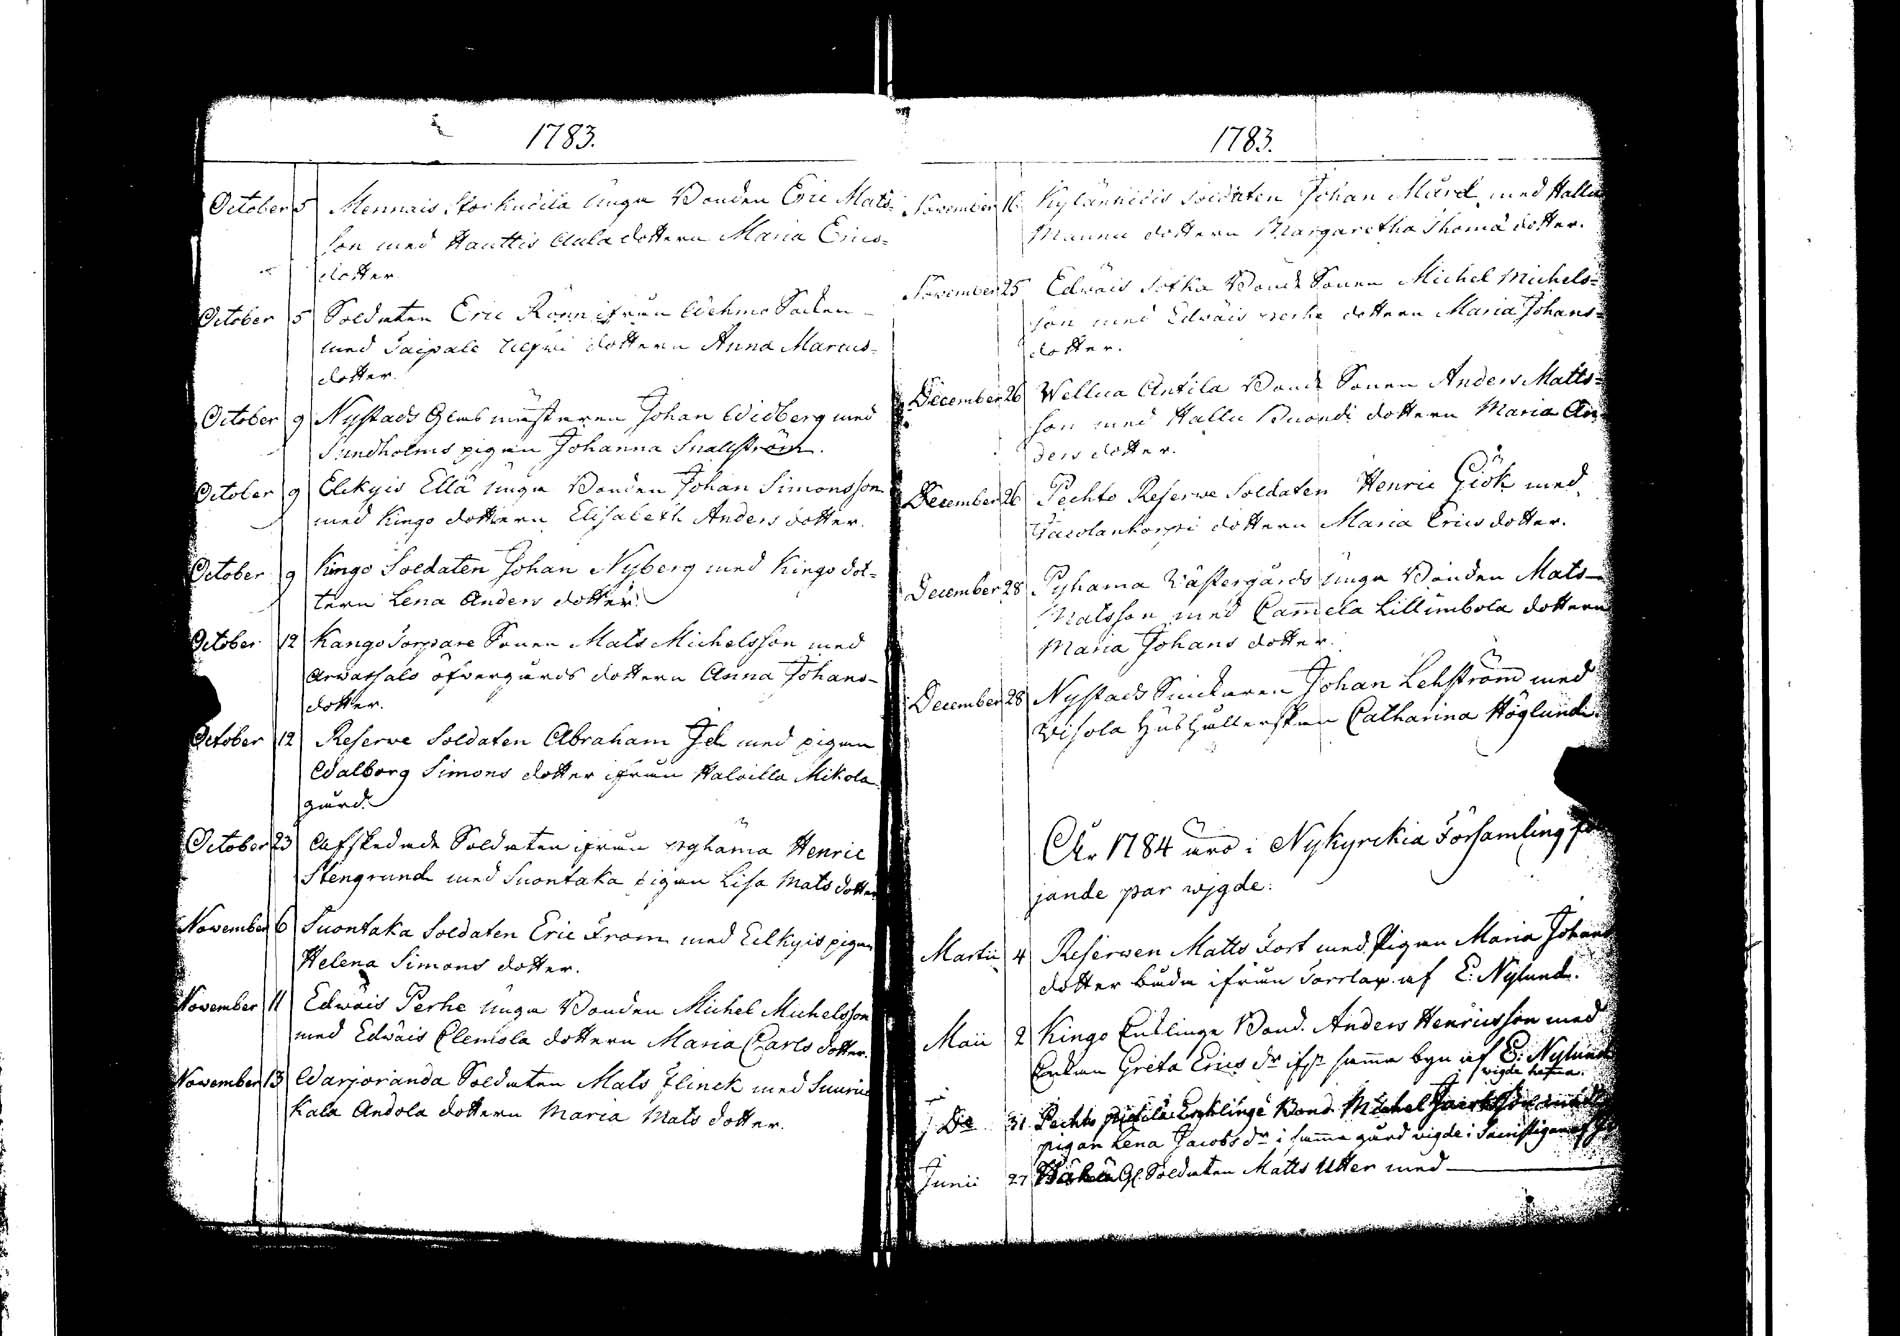 1783.
October 5 Mennais Storkucila Unga Bonden Eric Mats-
son med Hauttis Aula dottern Maria Erics-
dotter
October 5 Soldaten Eric Rönn ifrån Wehmo Socken
med Taipale dottern Anna Marcus-
dotter.
October 9 Nystads Glasmästeren Johan Widberg med
Sundholms pigan Johanna Snallström.
October 9 Elckyis Ellä Unga Bonden Johan Simonsson
med Kingo dottern Elisabeth Anders dotter.
October 9 Kingo Soldaten Johan Nyberg med Kingo dot-
tern Lena Anders dotter.
October 12 Kango Torpare Sonen Mats Michelsson med
Arwassalo öfvergårds dottern Anna Johans-
dotter.
October 12 Reserve Soldaten Abraham med pigan
Walborg Simons dotter ifrån Haloilla Mikola
gård.
October 23 Afskedade Soldaten ifrån Pyhäma Henric
Stengrund med Suontaka pigan Lisa Mats dotter
November 6 Suontaka Soldaten Eric From med Eelkyis pigan
Helena Simons dotter.
November 11 Edwäis Perhe Unga Bonden Michel Michelsson
med Edwäis Clemola dottern Maria Carls dotter.
November 13 Warjoranda Soldaten Mats Flinck med Suuri
Kala Andola dottern Maria Mats dotter.
1783.
November 16 Kylänkidis Soldaten Johan Mård med Hallu
Mannu dottern Margaretha Thomä dotter.
November 25 Edwäis Sotka Bonde Sonen Michel Michels-
son med Edwäis Perhe dottern Maria Johans-
dotter.
December 26 Wellua Antila Bonde Sonen Anders Matts-
son med Hallu Buondi dottern Maria An-
ders dotter.
December 26 Pechto Reserve Soldaten Henric Giök med
dottern Maria Erics dotter.
December 28 Pyhama Västergårds Unga Bonden Mats
Matsson med Cammela Lillimbola dottern
Maria Johans dotter.
December 28 Nystads Snickaren Johan Lehström med
Visola Hushållerskan Catharina Höglund.
År 1784 äro i Nykyrckia Församling föl
jande par wigde:
Martii 4 Reserven Matts Fort med Pigan Maria Johans
dotter båda ifrån af E: Nylund.
Maii 2 Kingo Encklinge Bond. Anders Henricsson med
Enkan Greta Erics dr samma byn af E: Nylund
wigde
Do 31 Pechto Encklinge Bond. Michel
pigan Lena Jacobs dr i samma gård vigde i Sacristigan af
Junii 27 Soldaten Matts Utter med